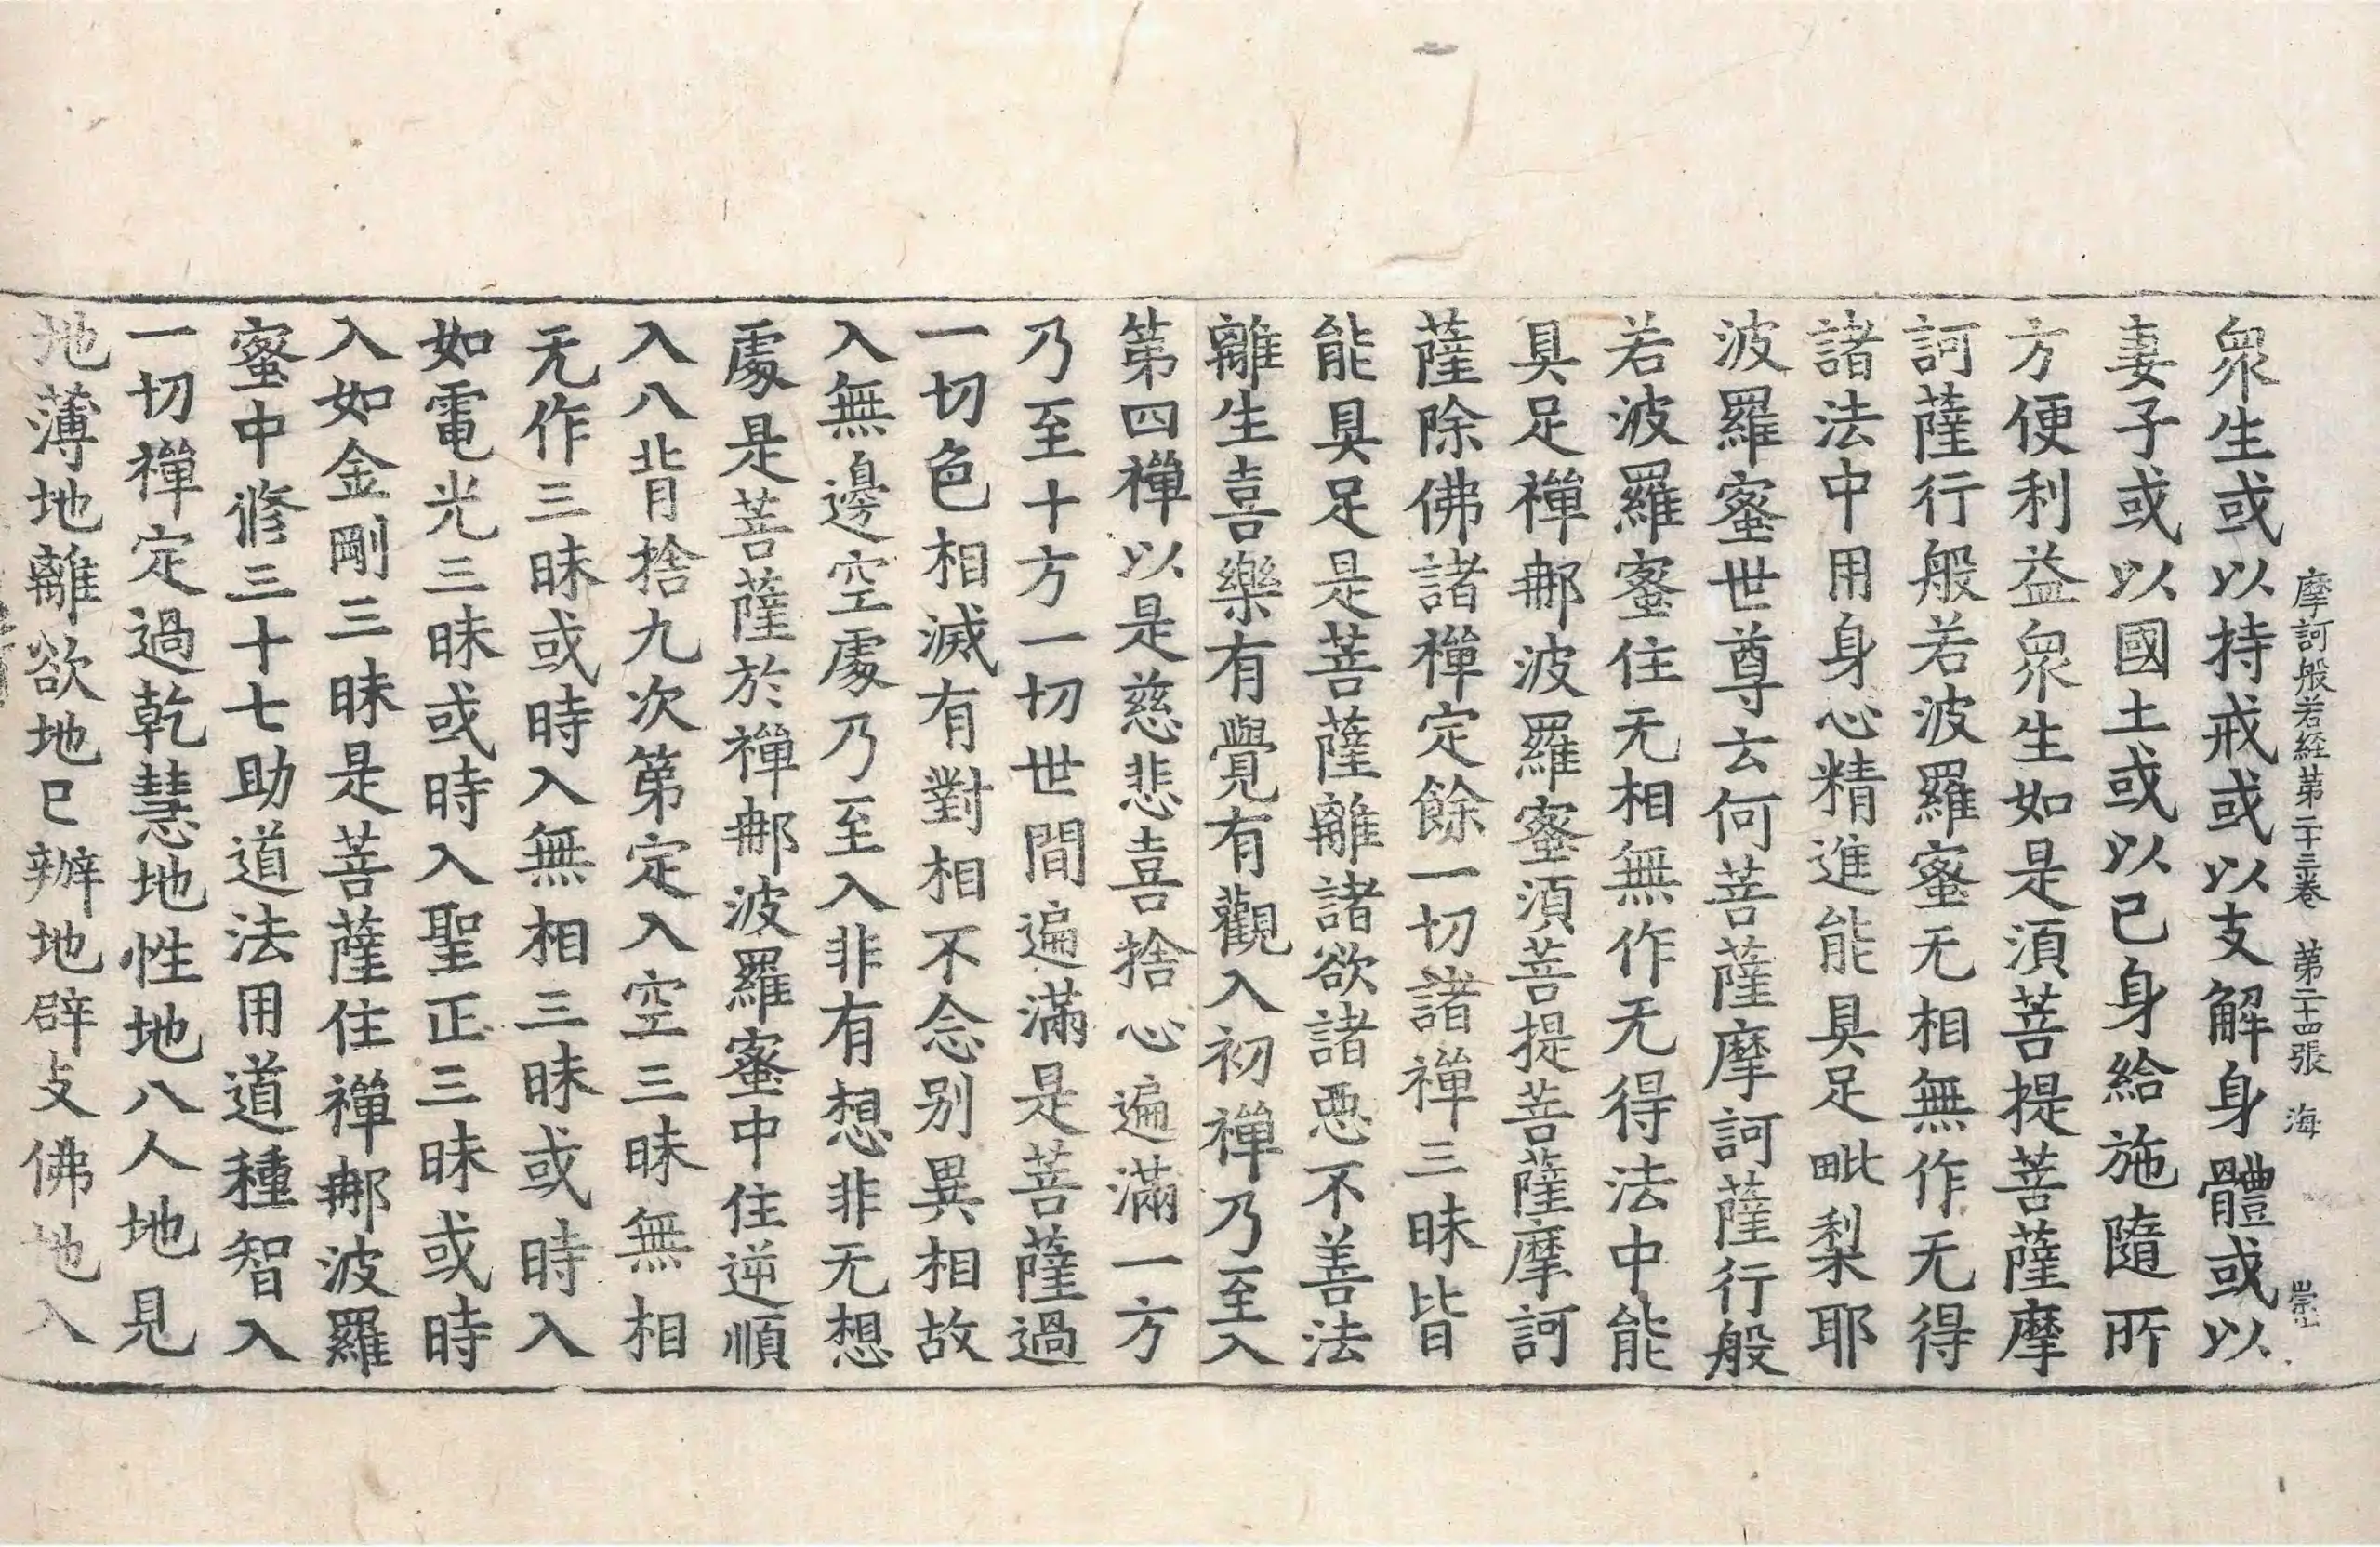 摩訶般若経第二十三卷 第二十四張 海 崇
眾生或以持戒或以支解身體或以
妻子或以國土或以己身給施隨所
方便利益眾生如是須菩提菩薩摩
訶薩行般若波羅蜜无相無作无得
諸法中用身心精進能具足毗梨耶
波羅蜜世尊云何菩薩摩訶薩行般
若波羅蜜住无相無作无得法中能
具足禪那波羅蜜須菩提菩薩摩訶
薩除佛諸禪定餘一切諸禪三昧皆
能具足是菩薩離諸欲諸惡不善法
離生喜樂有覺有觀入初禪乃至入
第四禪以是慈悲喜捨心遍滿一方
乃至十方一切世間遍滿是菩薩過
一切色相滅有對相不念別異相故
入無邊空處乃至入非有想非无想
處是菩薩於禪那波羅蜜中住逆順
入八背捨九次第定入空三昧無相
无作三昧或時入無相三昧或時入
如電光三昧或時入聖正三昧或時
入如金剛三昧是菩薩住禪那波羅
蜜中修三十七助道法用道種智入
一切禪定過乾慧地性地八人地見
地薄地離欲地已辦地辟支佛地入